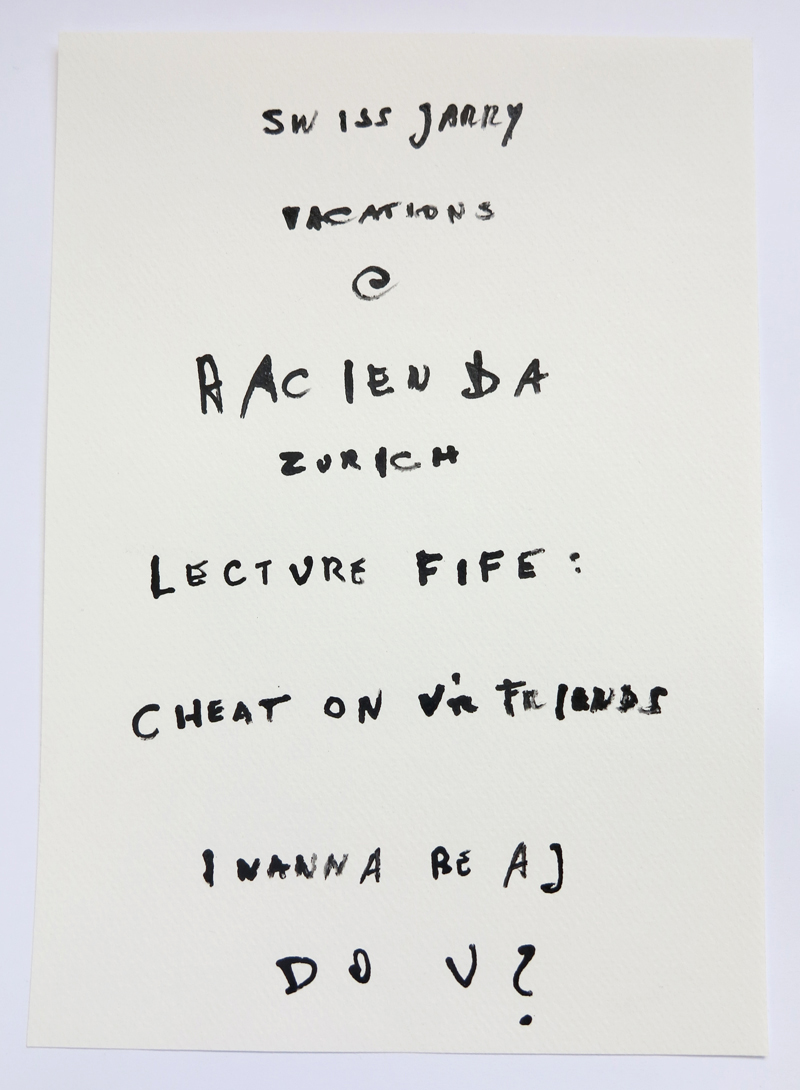 SWISS JARRY
VACATIONS
@
HACIENDA
ZURICH
LECTURE FIFE:
CHEAT ON UR FRIENDS
I WANNA BE AJ
DO U?